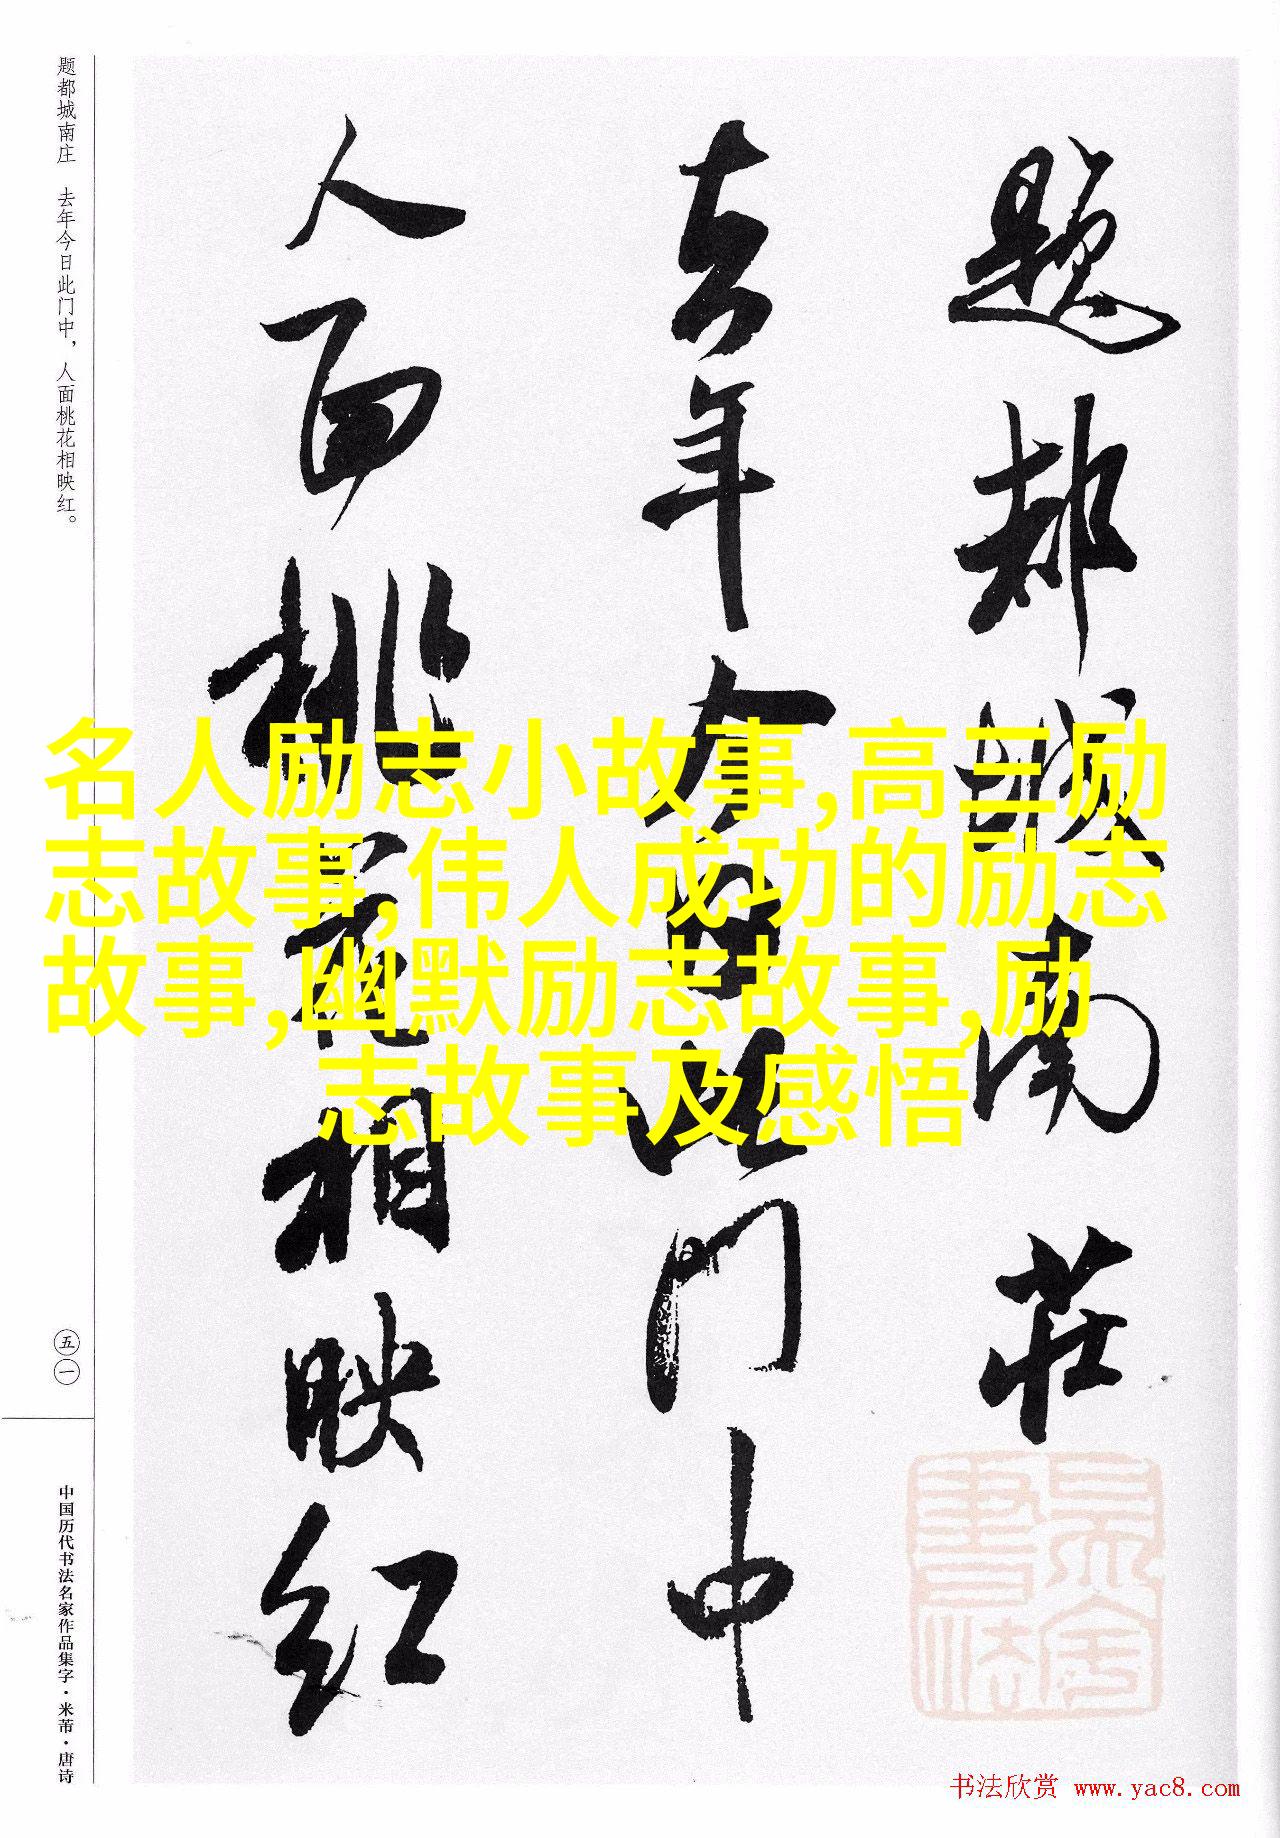 题都城南庄
去年今日此门中
人面桃花相映红
题都城南庄 去年今日此门中，人面桃花相映红。
五一
中国历代书法名家作品集字·米芾·唐诗
名人励志小故事,高三励
志故事,伟人成功的励志
故事,幽默励志故事,励
志故事及感悟
书法欣赏 www.yac8.com